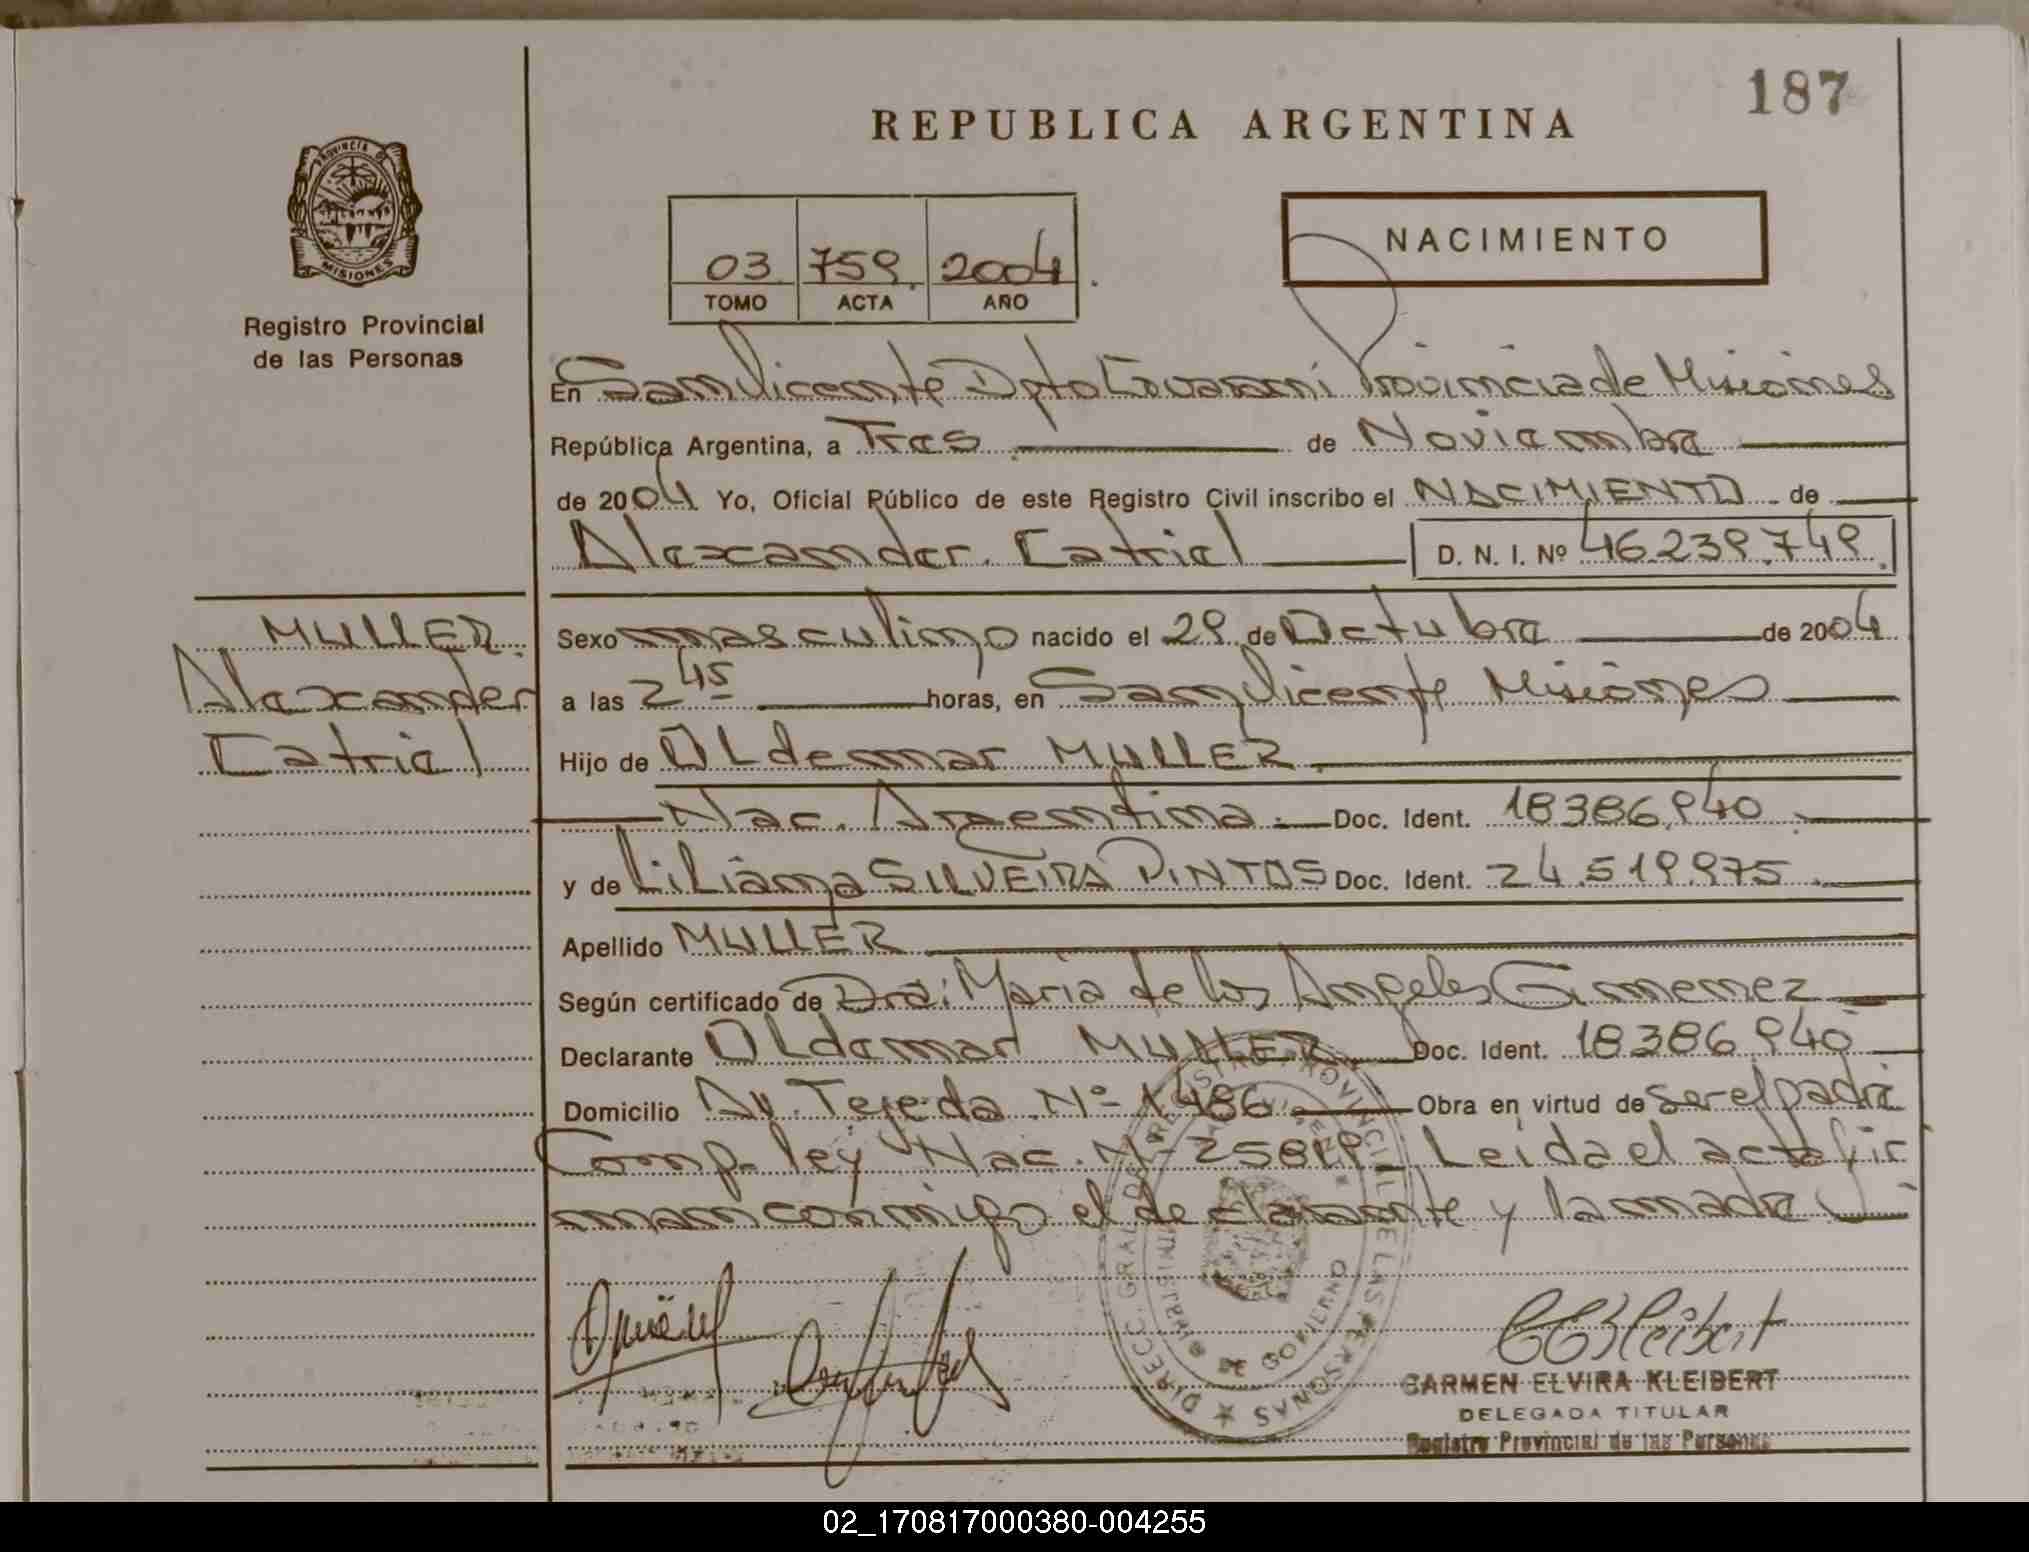 187
REPUBLICA ARGENTINA
PROVINCIA DE
MISIONES
Registro Provincial
de las Personas
03 759 2004
TOMO ACTA AÑO
NACIMIENTO
En San Vicente Dpto Guarani Provincia de Misiones
República Argentina, a Tres de Noviembre
de 2004 Yo, Oficial Público de este Registro Civil inscribo el NACIMIENTO de
Alexander Catriel D. N. I. Nº 46.239.749
MULLER
Alexander
Catriel
Sexo masculino nacido el 29 de Octubre de 2004
a las 2 45 horas, en San Vicente Misiones
Hijo de OLdemar MULLER
Nac. Argentina. Doc. Ident. 18386.940
y de LiLiana SILVEIRA PINTOS Doc. Ident. 24.519.975
Apellido MULLER
Según certificado de Dra: Maria de los Angeles Gimenez
Declarante OLdemar MULLER Doc. Ident. 18386.940
Domicilio Av. Tejeda Nº 1486 Obra en virtud de ser el padre
Comp. ley Nac. Nº 25819 Leida el acta fir
man conmigo el declarante y la madre
DIRECC. GRAL. DEL REGISTRO PROVINCIAL DE LAS PERSONAS
GOBIERNO
CARMEN ELVIRA KLEIBERT
DELEGADA TITULAR
Registro Provincial de las Personas
02_170817000380-004255